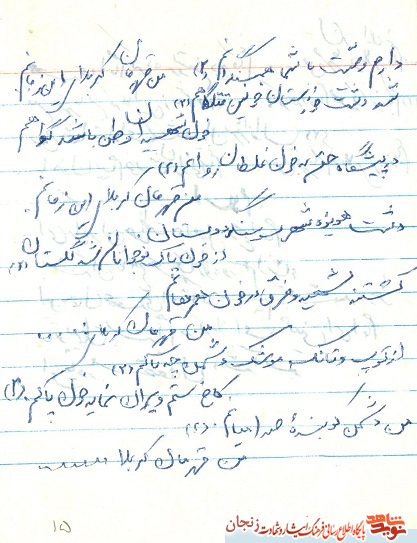 دارم وصیت با شما همسنگرانم (۲) من قهرمان کربلای این زمانم
شد دشت خوزستان خونین قتلگاهم (۲)
خون شهیدان وطن باشد گواهم
در پیشگاه حق به خون غلطان روانم (۲)
من قهرمان کربلای این زمانم
دشت هویزه شهر سوسنگرد و بستان
از خون پاک نوجوانان شد گلستان (۲)
گشتند شهید و غرق در خون
من قهرمان کربلا .....
از توپ و تانک و موشک دشمن چه باکم (۲)
کاخ ستم ویران نماید خون پاکم (۲)
من دشمن کوبنده صدامیانم (۲)
من قهرمان کربلا .......
۱۵
نوید شاهد پایگاه اطلاع رسانی فرهنگ ایثار و شهادت زنجان